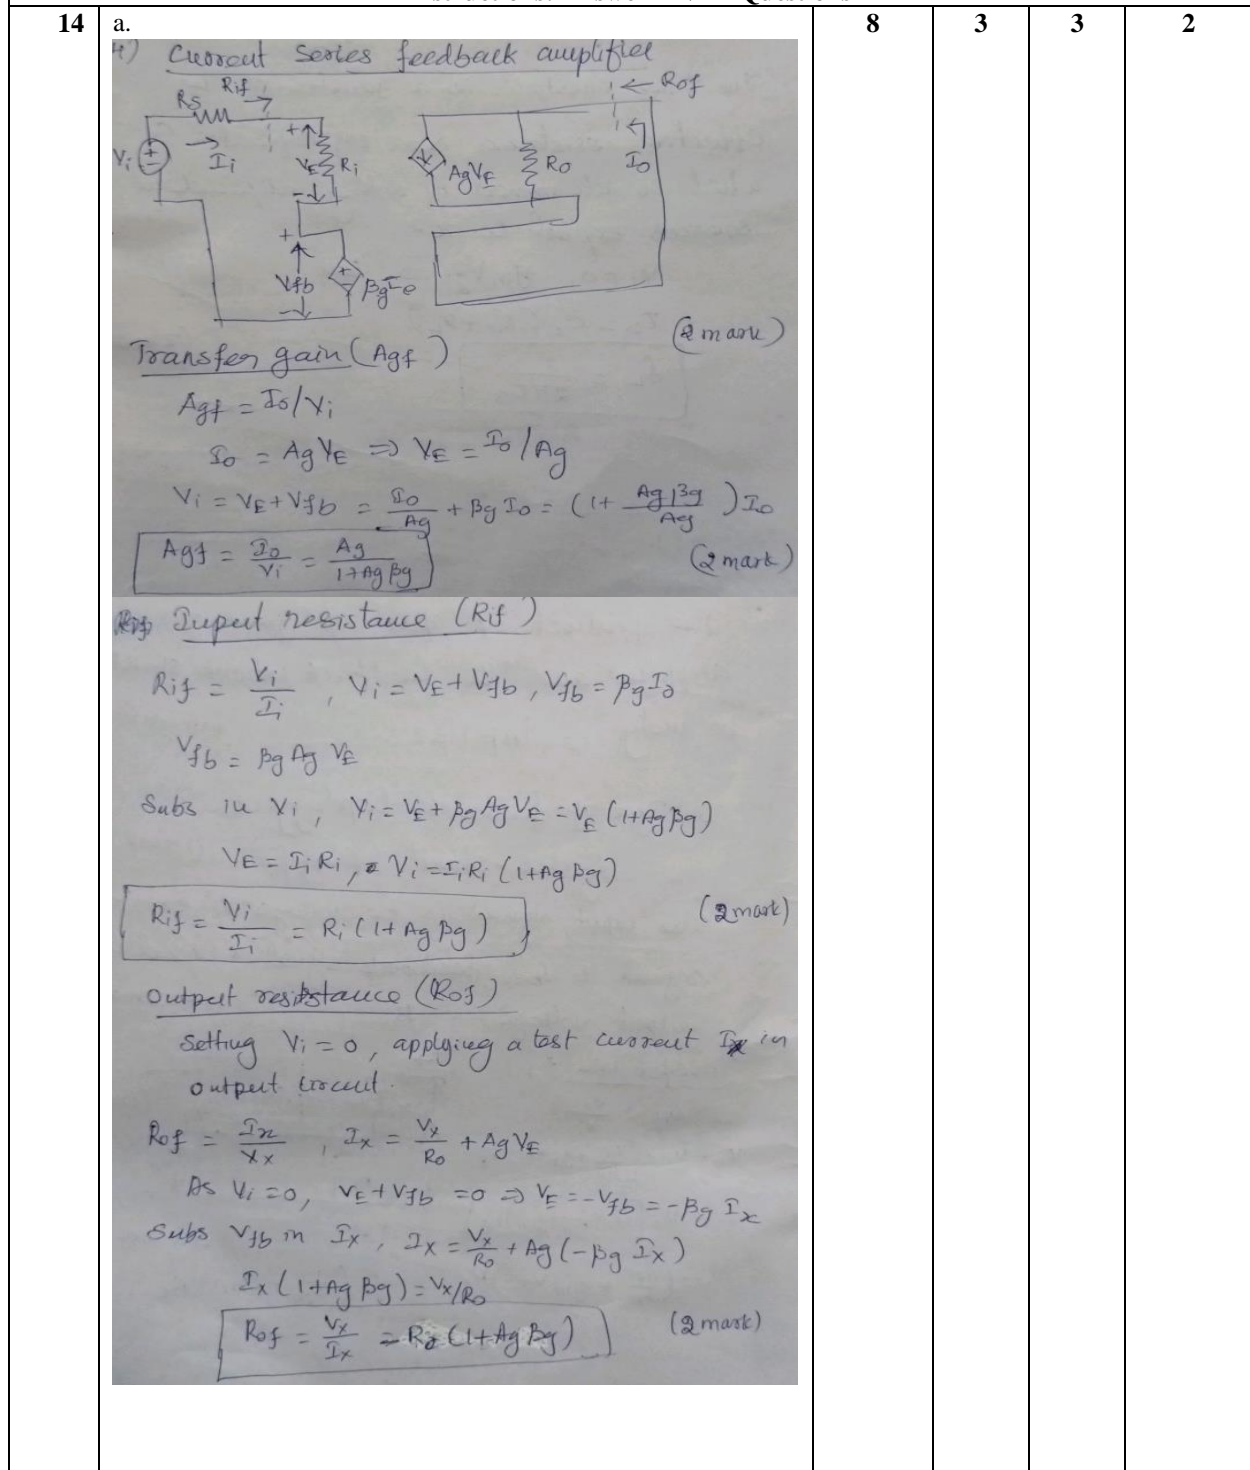 14 a. 8 3 3 2
4) Current Series feedback amplifier
Rif Rof
Rs
Vi Ii VE Ri AgVE Ro Io
Vfb βgIo
(2 mark)
Transfer gain (Agf)
Agf = Io/Vi
Io = AgVE => VE = Io/Ag
Vi = VE+Vfb = Io/Ag + βg Io = (1+ Agβg/Ag) Io
Agf = Io/Vi = Ag/1+Agβg (2 mark)
Input resistance (Rif)
Rif = Vi/Ii , Vi = VE+Vfb , Vfb = βgIo
Vfb = βg Ag VE
Subs in Vi, Vi = VE + βg Ag VE = VE (1+Agβg)
VE = Ii Ri, Vi = Ii Ri (1+Ag βg)
Rif = Vi/Ii = Ri (1+ Ag βg) (2 mark)
Output resistance (Rof)
Setting Vi = 0, applying a test current Ix in
output circuit.
Rof = Ix/Vx , Ix = Vx/Ro + AgVE
As Vi = 0, VE+Vfb = 0 => VE = -Vfb = -βg Ix
Subs Vfb in Ix, Ix = Vx/Ro + Ag (-βg Ix)
Ix (1+Ag βg) = Vx/Ro
Rof = Vx/Ix = Ro (1+Ag βg) (2 mark)